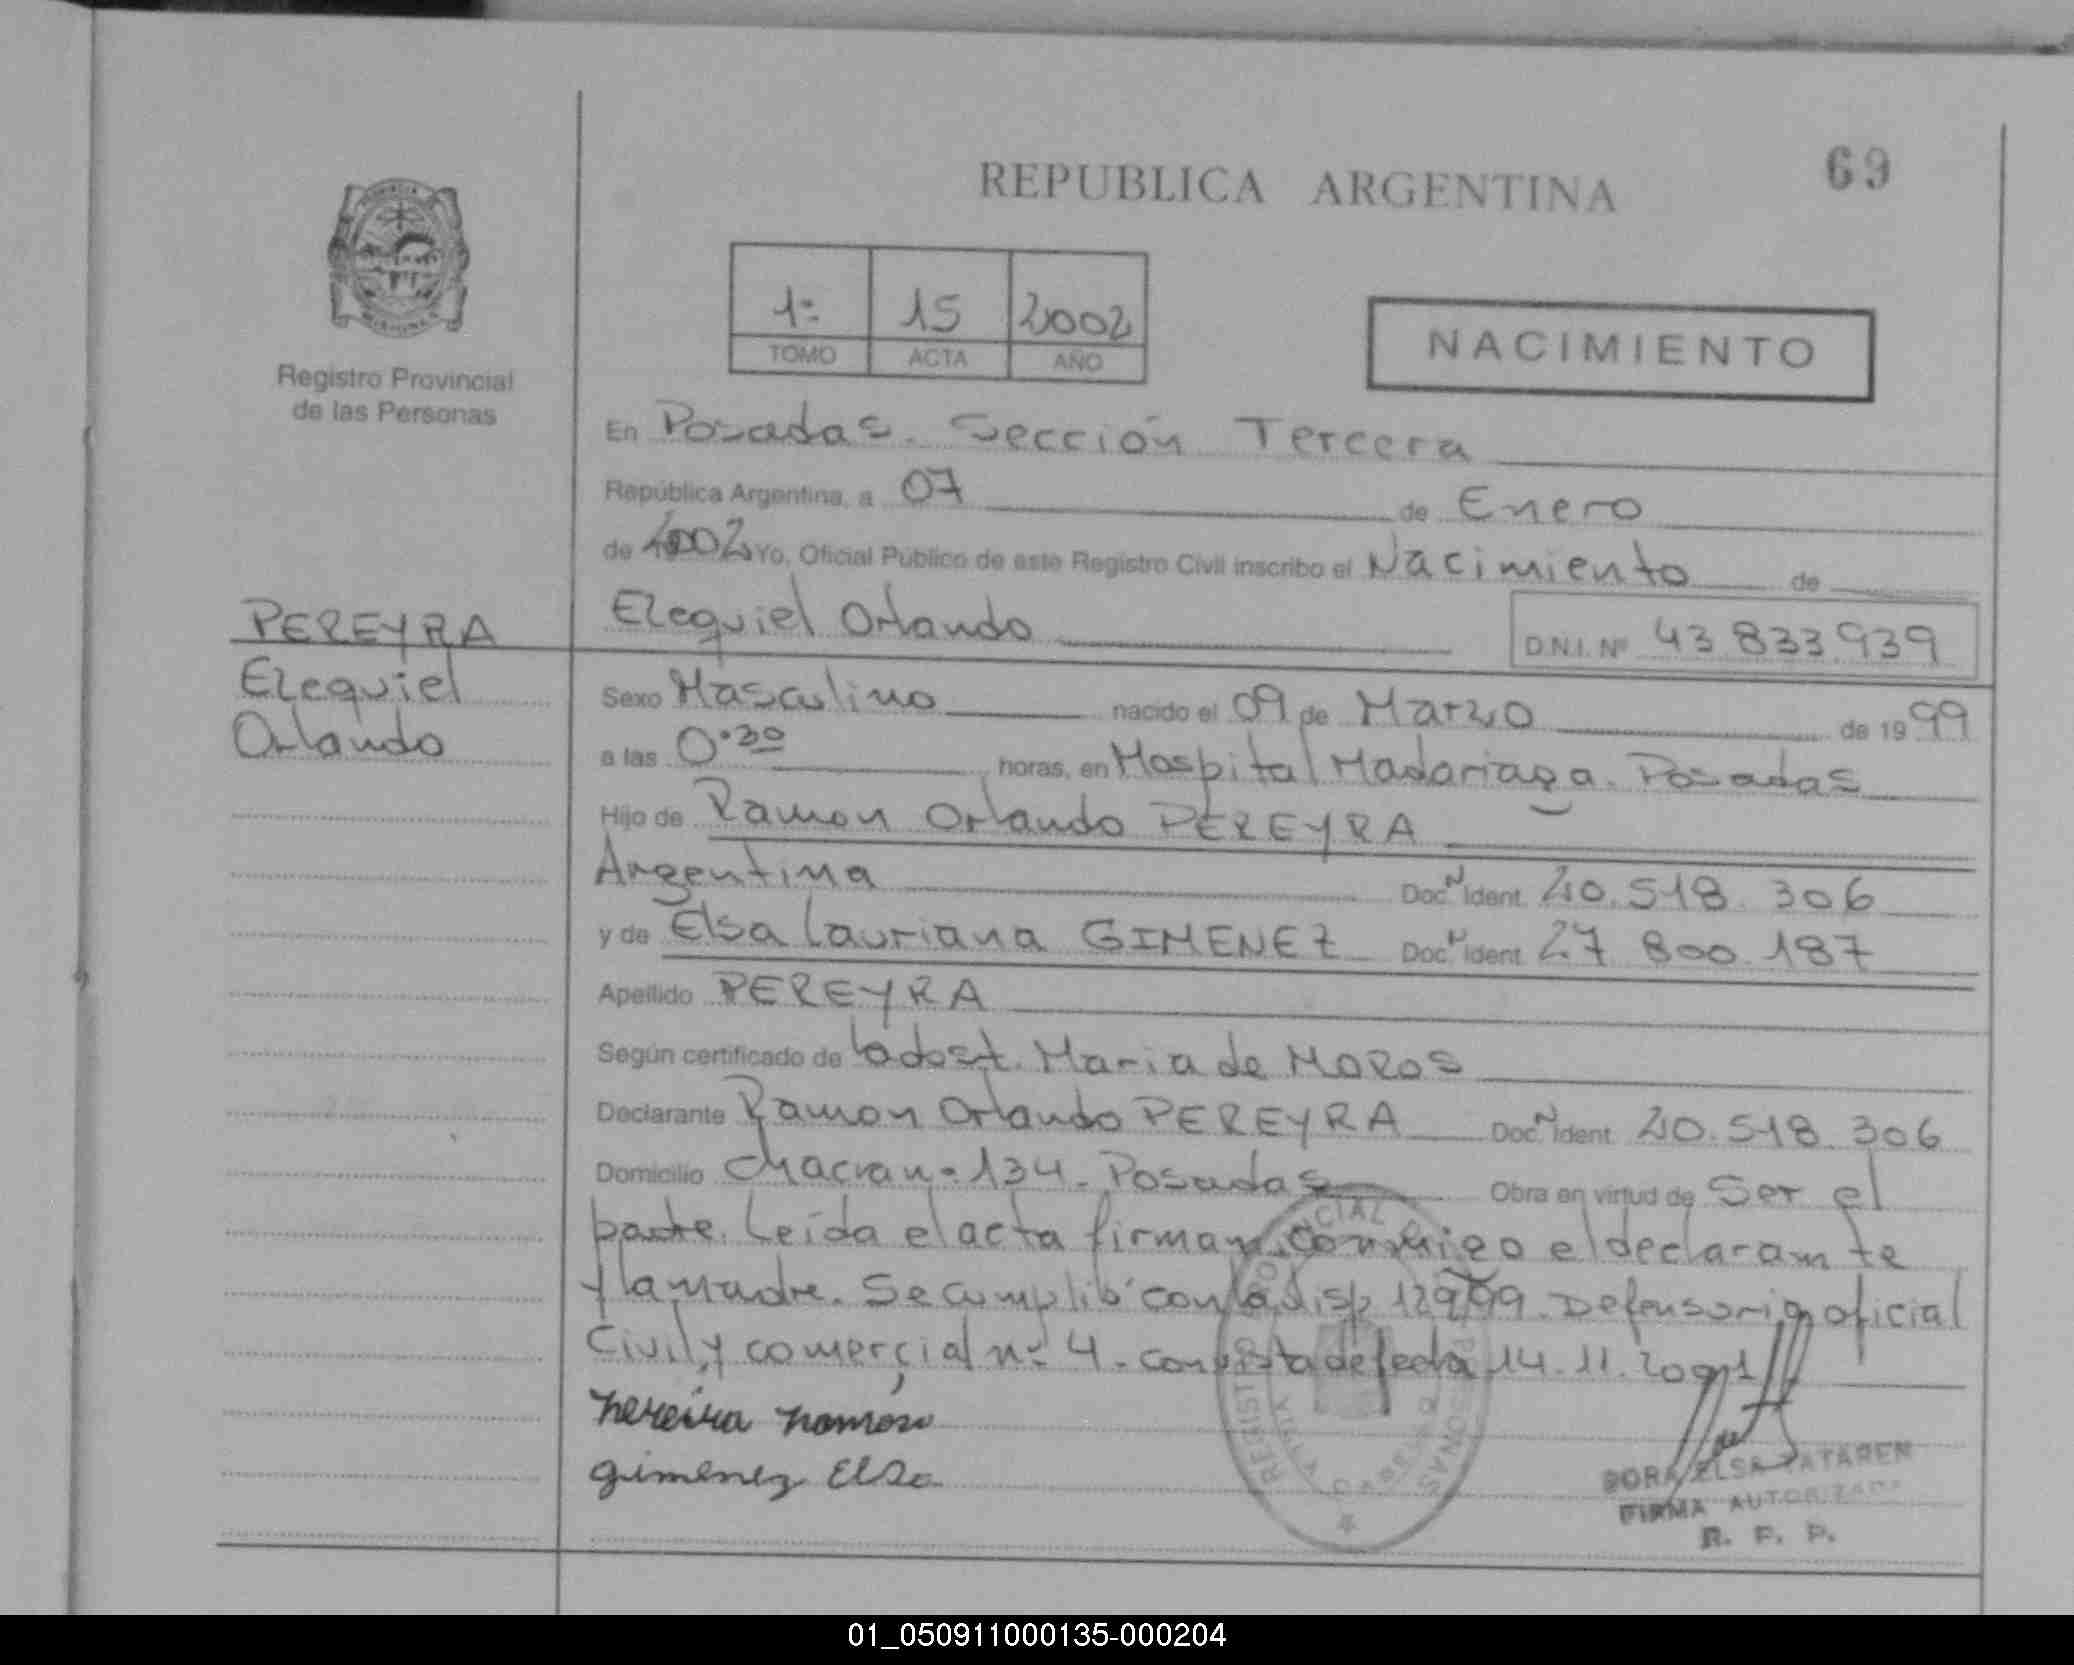 REPUBLICA ARGENTINA
69
1º 15 2002
TOMO ACTA AÑO
NACIMIENTO
Registro Provincial
de las Personas
En Posadas. Sección Tercera
República Argentina, a 07 de Enero
de 2002 Yo, Oficial Público de este Registro Civil inscribo el Nacimiento de
PEREYRA
Ezequiel
Orlando
Ezequiel Orlando D.N.I. Nº 43 833 939
Sexo Masculino nacido el 09 de Marzo de 1999
a las 0.30 horas, en Hospital Madariaga. Posadas
Hijo de Ramon Orlando PEREYRA
Argentina Doc. N Ident. 20.518.306
y de Elsa Lauriana GIMENEZ Doc. N Ident. 27 800 187
Apellido PEREYRA
Según certificado de la obst. Maria de MOROS
Declarante Ramon Orlando PEREYRA Doc. N Ident. 20.518.306
Domicilio Chacra nº 134. Posadas Obra en virtud de Ser el
padre. Leída el acta firman conmigo el declarante
y la madre. Se cumplió con la disp 12999. Defensoria oficial
Civil y comercial nº 4. con vista de fecha 14.11.2001
Pereira Ramon
Gimenez Elsa
REGISTRO PROVINCIAL DE LAS PERSONAS
DORA ELSA TATAREN
FIRMA AUTORIZADA
R. P. P.
01_050911000135-000204